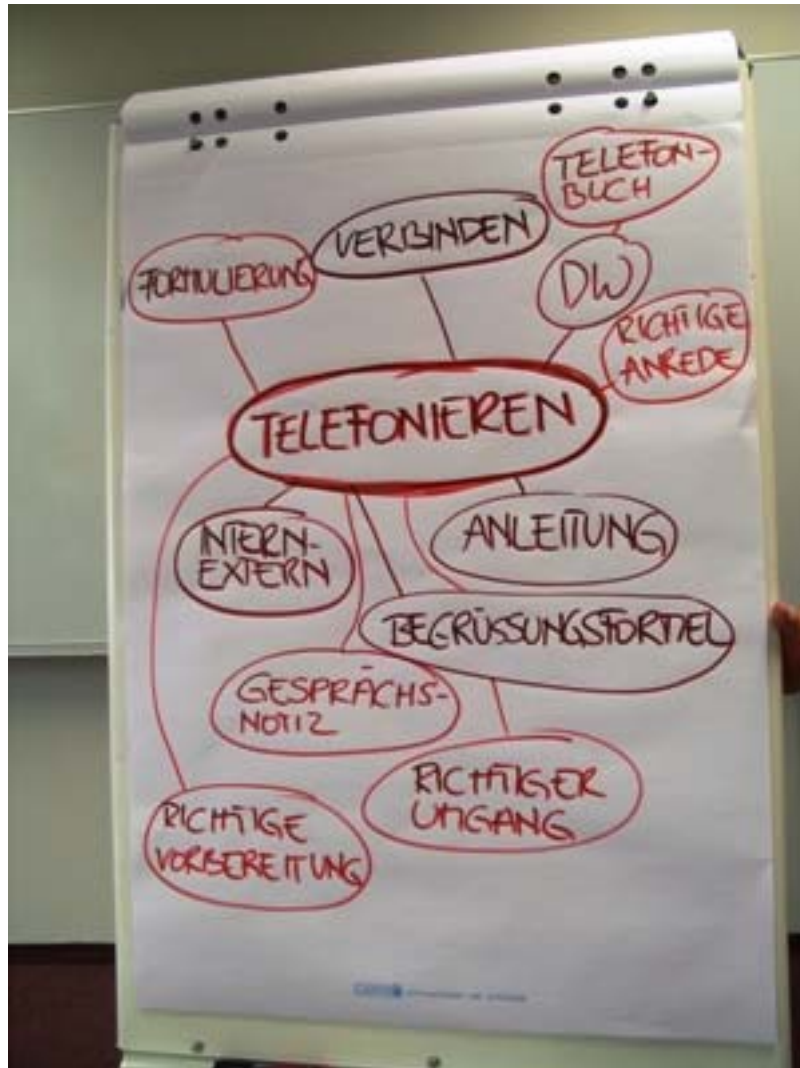 TELEFON-
BUCH
VERBINDEN
FORMULIERUNG
DW
RICHTIGE
ANREDE
TELEFONIEREN
INTERN-
EXTERN
ANLEITUNG
BEGRÜSSUNGSFORMEL
GESPRÄCHS-
NOTIZ
RICHTIGER
UMGANG
RICHTIGE
VORBEREITUNG